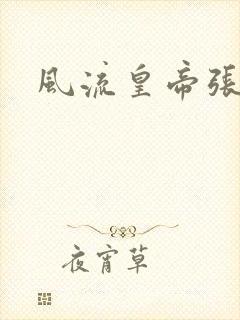 風流皇帝張
夜宵草